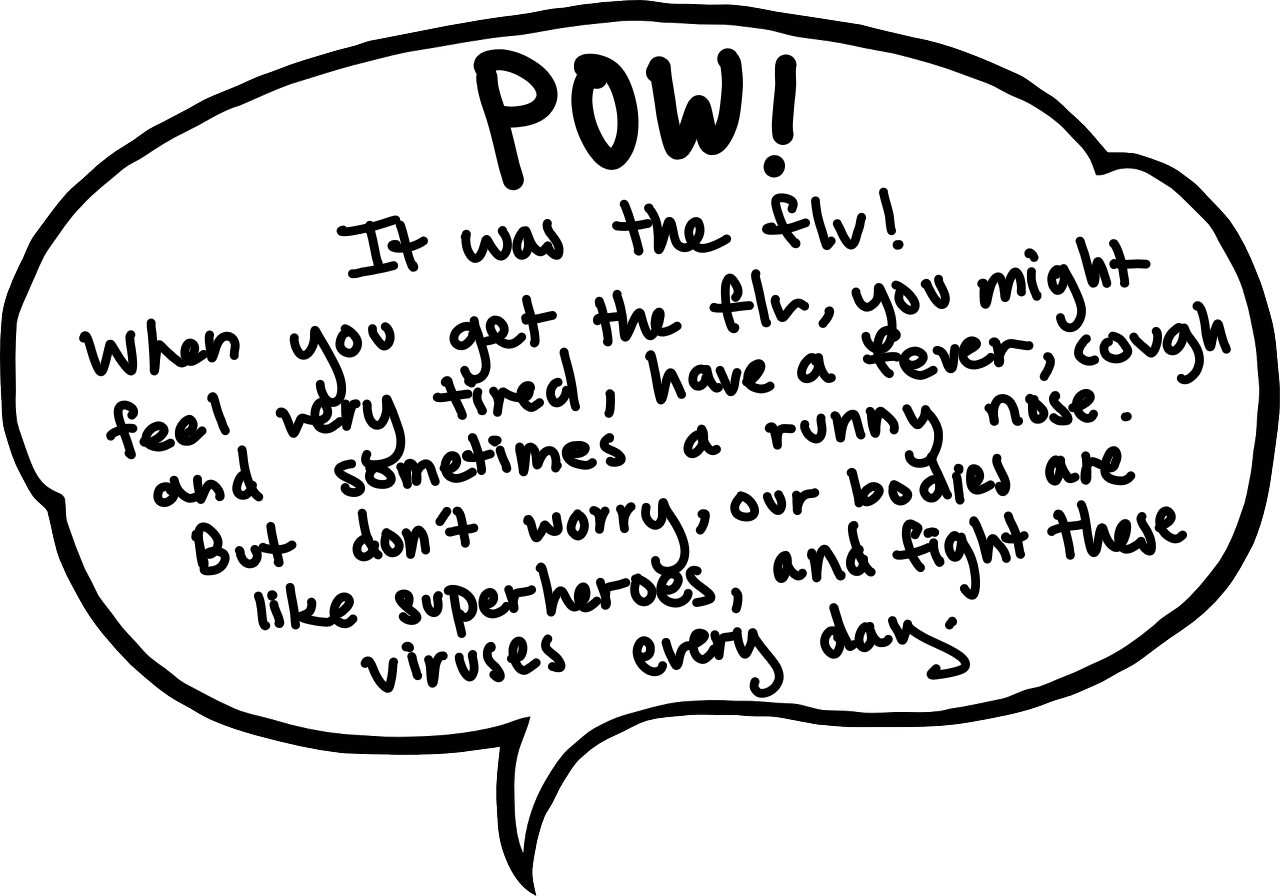 POW!
It was the flu!
When you get the flu, you might
feel very tired, have a fever, cough
and sometimes a runny nose.
But don't worry, our bodies are
like superheroes, and fight these
viruses every day.